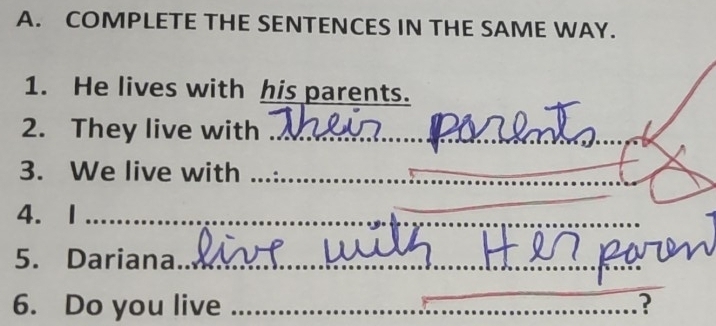 A. COMPLETE THE SENTENCES IN THE SAME WAY.
1. He lives with his parents.
2. They live with their parents
3. We live with ...............
4. I ...............
5. Dariana live with Her parent
6. Do you live ...............?